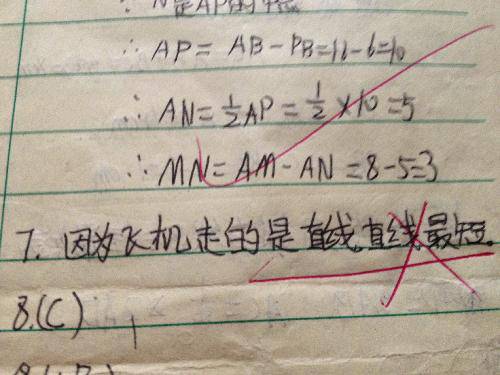 ∵ N是AP的中点
∴ AP = AB - PB = 16 - 6 = 10
∴ AN = 1/2 AP = 1/2 × 10 = 5
∴ MN = AM - AN = 8 - 5 = 3
7. 因为飞机走的是直线,直线最短.
8.(C)